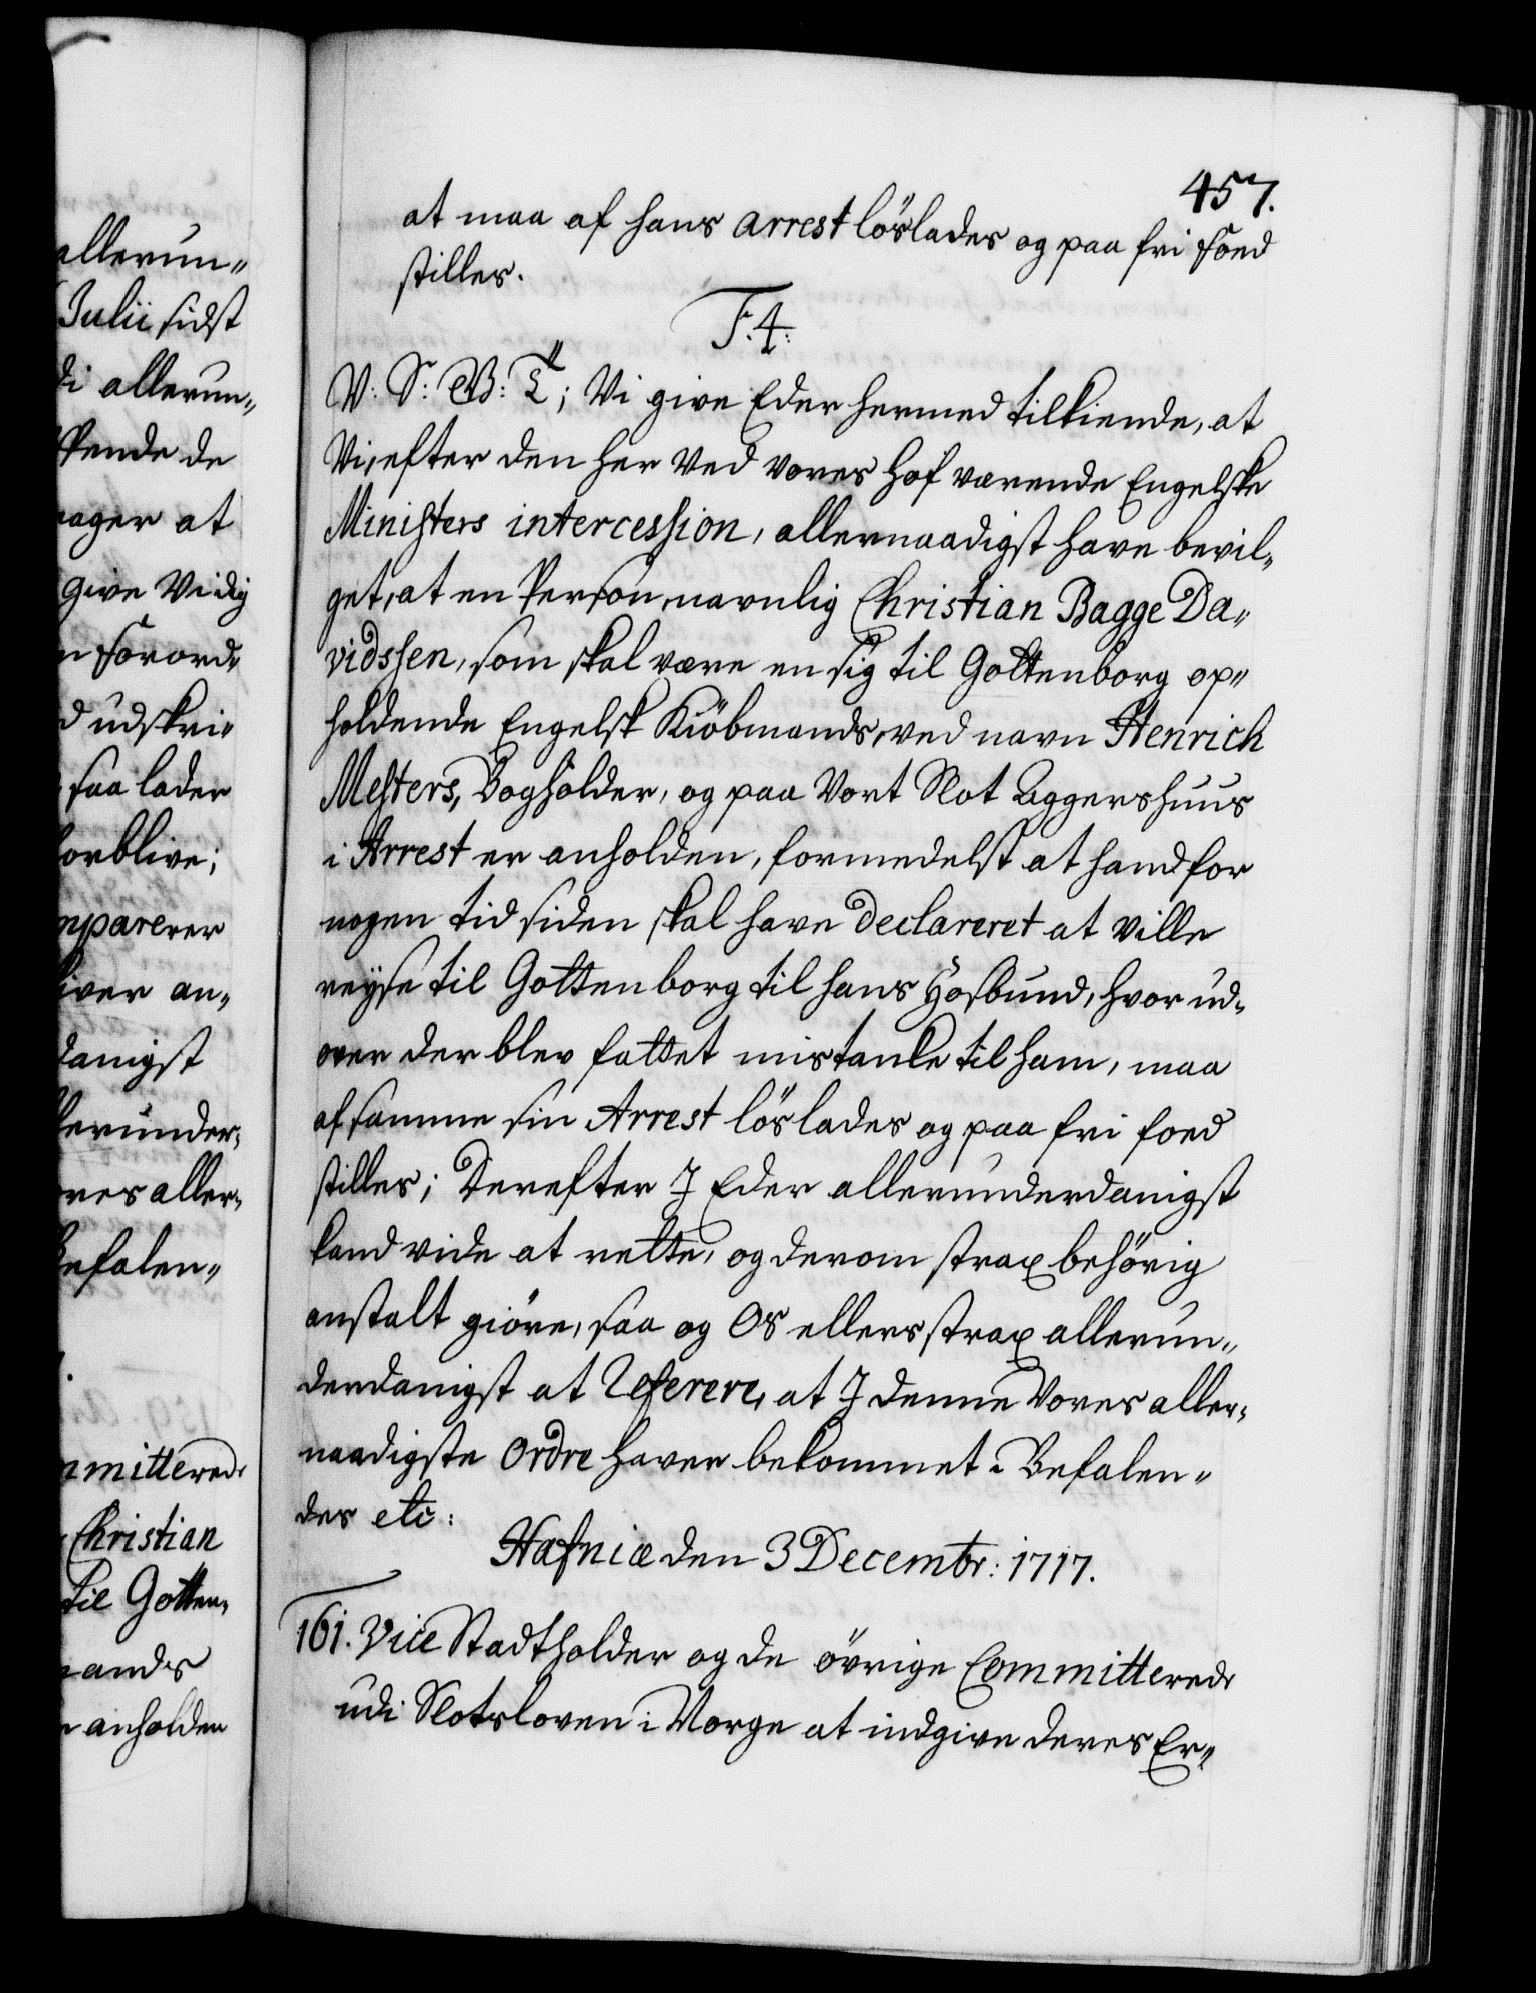 allerun„
Julii sidst
di allerun„
kende de
rager at
give Vi dig
n forord„
d udskri„
saa lader
forblive;
mparerer
liver an„
danigst
lerunder„
ores aller„
Befalen„
mmitterede
Christian
til Gotten„
mands
r anholden
457.
at maa af hans arrest löslades og paa fri foed
stilles.
F. 4.
W: S: G: B: T; Vi give Eder hermed tilkiende, at
Vi, efter den her Ved vores Hof værende Engelske
Ministers intercession, allernaadigst have bevil„
get, at en Person, navnlig Christian Bagge Da„
vidssen, som skal være en sig til Gottenborg op„
holdende Engelsk Kiöbmands, ved navn Henrich
Mesters, Bogholder, og paa Vort Slot Aggershuus
i Arrest er anholden, formedelst at hand for
nogen tid siden skal have declareret at ville
reyse til Gottenborg til hans Hosbund, hvor ud„
over der blev fattet mistanke til ham, maa
af samme sin Arrest löslades og paa fri foed
stilles; Derefter I Eder allerunderdanigst
kand vide at rette, og derom strax behörig
anstalt giöre, saa og Os ellers strax allerun„
derdanigst at Referere, at I denne Vores aller„
naadigste Ordre haver bekommet. Befalen„
des etc:
Hafniæ den 3 Decembr: 1717.
161. Vice Stadtholder og de övrige Committerede
udi Slotsloven i Norge at indgive deres Er„